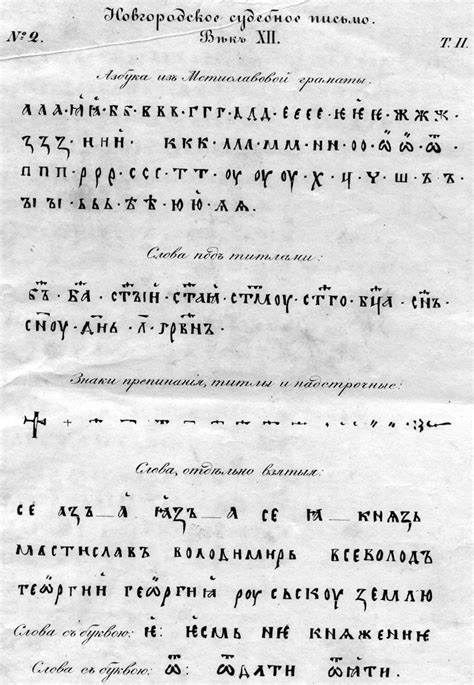 Новгородское судебное письмо.
№ 2. Вѣкъ XII. Т. II.
Азбука изъ Мстиславовой граматы.
А А А · Ꙗ Ꙗ · Б Б · В В В · Г Г Г · Д Д Д · Є Є Є Є · Ѥ Ѥ Ѥ · Ж Ж Ж ·
Ꙁ Ꙁ Ꙁ · И Й Й · К К К · Л Л Л · М М · N N · О О · Ѡ Ѡ · Ѿ
П П П · Р Р Р · С С С · Т Т · ОУ ОУ ОУ · Х · Ц · Ч · Ш · Ъ Ъ ·
Ꙑ Ꙑ · Ь Ь Ь · Ѣ Ѣ · Ю Ю · Ѧ Ѧ ·
Слова подъ титлами:
Б҃Ъ · Б҃А · СТ҃ЫИ · СТ҃АꙖ · СТ҃МОУ · СТ҃ГО · Б҃ЦА · С҃NЪ ·
С҃NОУ · Д҃NЬ · Л҃ · ГРВ҃NЪ ·
Знаки препинанія, титлы и надстрочные:
Слова, отдѣльно взятыя:
СЕ АЗЪ — А ꙖЗЪ — А СЕ Ꙗ КNѦЗЬ
МЬСТИСЛАВЪ ВОЛОДИМИРЬ ВСЕВОЛОДЪ
ГЕѠРГИИ ГЕѠРГИꙖ РОУСЬСКОУ ЗЕМЛЮ
Слова съ буквою: Ѥ: ѤСМЬ NѤ КNѦЖЕNИѤ
Слова съ буквою: Ѿ: ѾДАТИ ѾꙖТИ.